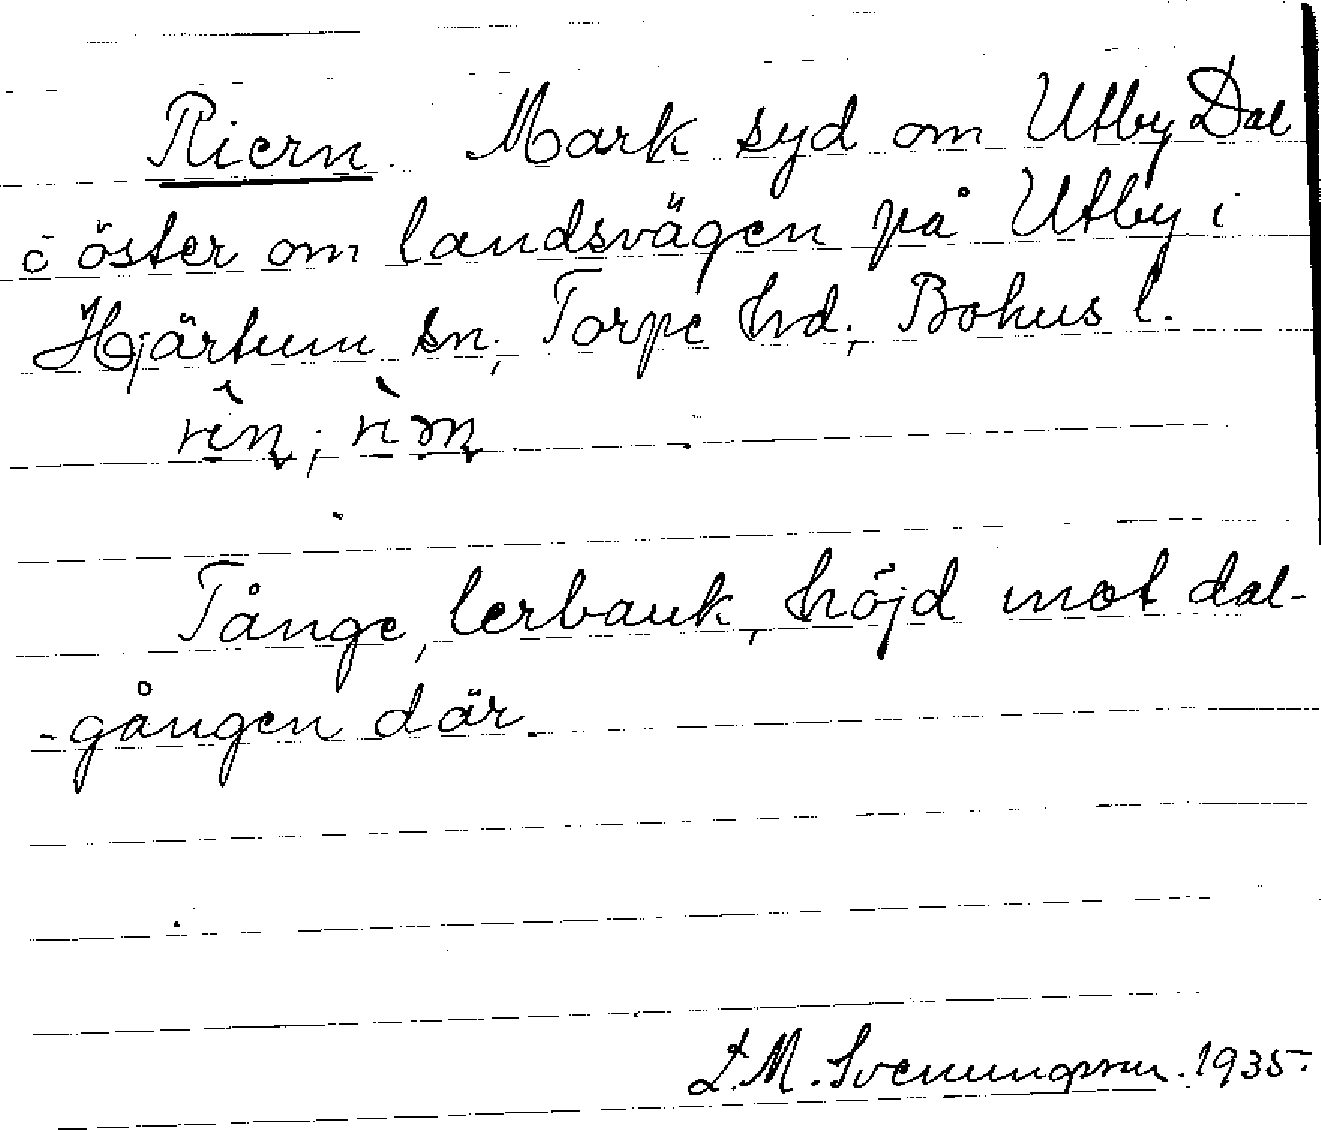 Riern. Mark syd om Utby Dal
o öster om landsvägen på Utby i
Hjärtum sn, Torpe hd, Bohus l.
Tånge, lerbank, höjd mot dal-
-gången där.
L.M. Svenungsson. 1935.